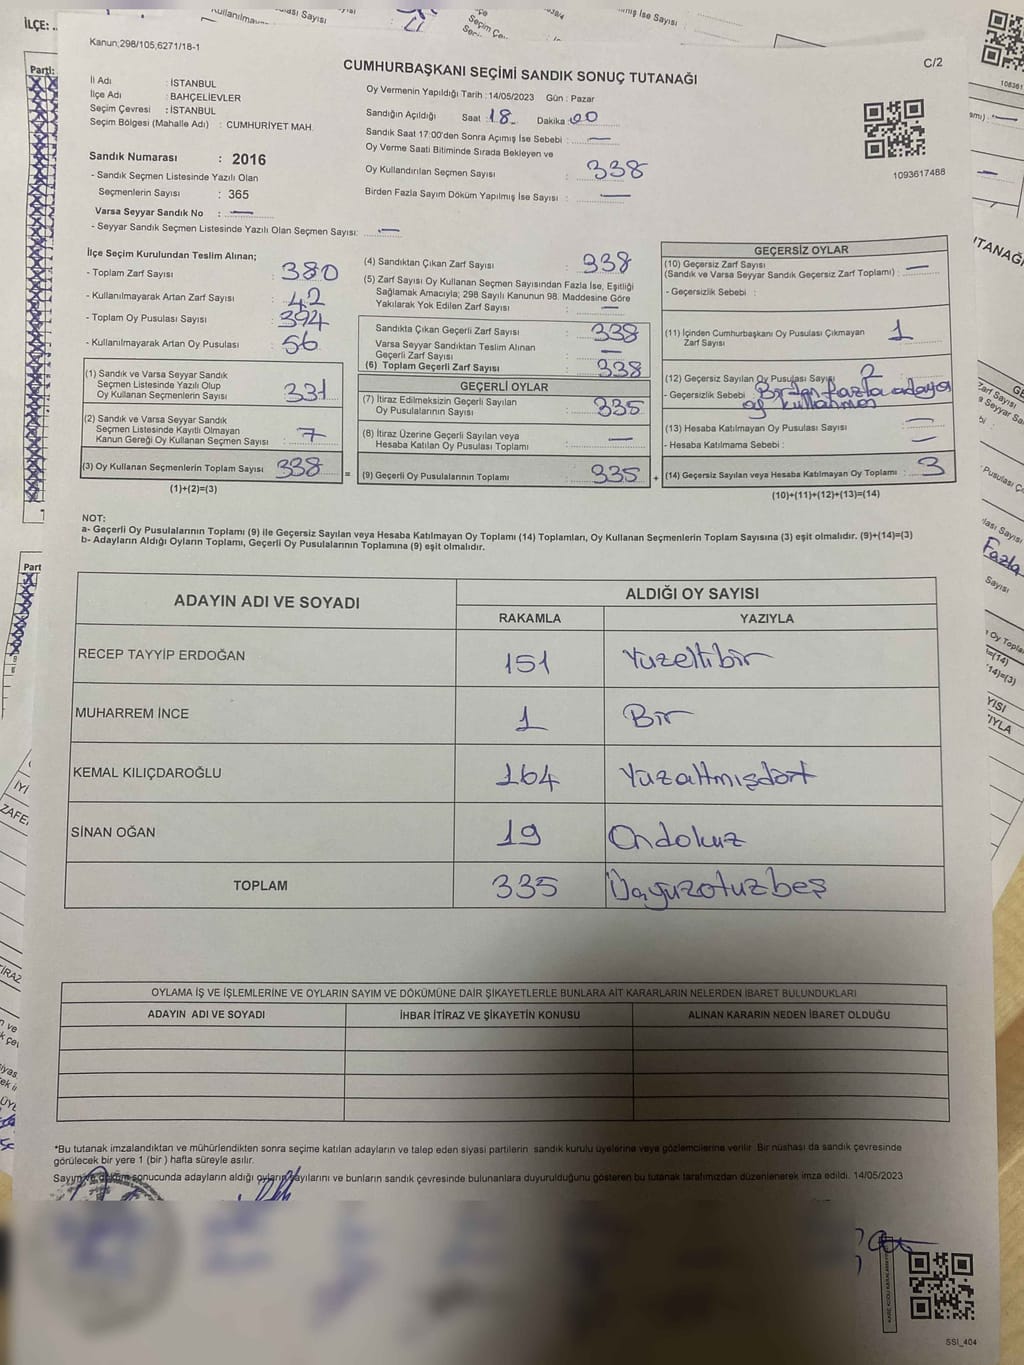 Kanun;298/105,6271/18-1
C/2
CUMHURBAŞKANI SEÇİMİ SANDIK SONUÇ TUTANAĞI
İl Adı : İSTANBUL
İlçe Adı : BAHÇELİEVLER
Seçim Çevresi : İSTANBUL
Seçim Bölgesi (Mahalle Adı) : CUMHURİYET MAH.
Sandık Numarası : 2016
- Sandık Seçmen Listesinde Yazılı Olan
Seçmenlerin Sayısı : 365
Varsa Seyyar Sandık No : —
- Seyyar Sandık Seçmen Listesinde Yazılı Olan Seçmen Sayısı: —
Oy Vermenin Yapıldığı Tarih :14/05/2023 Gün : Pazar
Sandığın Açıldığı Saat :18 Dakika :00
Sandık Saat 17:00'den Sonra Açımış İse Sebebi : —
Oy Verme Saati Bitiminde Sırada Bekleyen ve
Oy Kullandırılan Seçmen Sayısı : 338
Birden Fazla Sayım Döküm Yapılmış İse Sayısı : —
1093617488
İlçe Seçim Kurulundan Teslim Alınan;
- Toplam Zarf Sayısı : 380
- Kullanılmayarak Artan Zarf Sayısı : 42
- Toplam Oy Pusulası Sayısı : 394
- Kullanılmayarak Artan Oy Pusulası : 56
(1) Sandık ve Varsa Seyyar Sandık
Seçmen Listesinde Yazılı Olup
Oy Kullanan Seçmenlerin Sayısı : 331
(2) Sandık ve Varsa Seyyar Sandık
Seçmen Listesinde Kayıtlı Olmayan
Kanun Gereği Oy Kullanan Seçmen Sayısı : 7
(3) Oy Kullanan Seçmenlerin Toplam Sayısı : 338 =
(1)+(2)=(3)
(4) Sandıktan Çıkan Zarf Sayısı : 338
(5) Zarf Sayısı Oy Kullanan Seçmen Sayısından Fazla İse, Eşitliği
Sağlamak Amacıyla; 298 Sayılı Kanunun 98. Maddesine Göre
Yakılarak Yok Edilen Zarf Sayısı : —
Sandıkta Çıkan Geçerli Zarf Sayısı : 338
Varsa Seyyar Sandıktan Teslim Alınan
Geçerli Zarf Sayısı : —
(6) Toplam Geçerli Zarf Sayısı : 338
GEÇERLİ OYLAR
(7) İtiraz Edilmeksizin Geçerli Sayılan
Oy Pusulalarının Sayısı : 335
(8) İtiraz Üzerine Geçerli Sayılan veya
Hesaba Katılan Oy Pusulası Toplamı : —
(9) Geçerli Oy Pusulalarının Toplamı : 335 +
GEÇERSİZ OYLAR
(10) Geçersiz Zarf Sayısı
(Sandık ve Varsa Seyyar Sandık Geçersiz Zarf Toplamı) : —
- Geçersizlik Sebebi :
(11) İçinden Cumhurbaşkanı Oy Pusulası Çıkmayan
Zarf Sayısı : 1
(12) Geçersiz Sayılan Oy Pusulası Sayısı : 2
- Geçersizlik Sebebi : Birden fazla adaya
oy kullanmos
(13) Hesaba Katılmayan Oy Pusulası Sayısı : —
- Hesaba Katılmama Sebebi : —
(14) Geçersiz Sayılan veya Hesaba Katılmayan Oy Toplamı : 3
(10)+(11)+(12)+(13)=(14)
NOT:
a- Geçerli Oy Pusulalarının Toplamı (9) ile Geçersiz Sayılan veya Hesaba Katılmayan Oy Toplamı (14) Toplamları, Oy Kullanan Seçmenlerin Toplam Sayısına (3) eşit olmalıdır. (9)+(14)=(3)
b- Adayların Aldığı Oyların Toplamı, Geçerli Oy Pusulalarının Toplamına (9) eşit olmalıdır.
ADAYIN ADI VE SOYADI
ALDIĞI OY SAYISI
RAKAMLA YAZIYLA
RECEP TAYYİP ERDOĞAN 151 Yüzellibir
MUHARREM İNCE 1 Bir
KEMAL KILIÇDAROĞLU 164 Yüzaltmışdört
SİNAN OĞAN 19 Ondokuz
TOPLAM 335 Üçyüzotuzbeş
OYLAMA İŞ VE İŞLEMLERİNE VE OYLARIN SAYIM VE DÖKÜMÜNE DAİR ŞİKAYETLERLE BUNLARA AİT KARARLARIN NELERDEN İBARET BULUNDUKLARI
ADAYIN ADI VE SOYADI İHBAR İTİRAZ VE ŞİKAYETİN KONUSU ALINAN KARARIN NEDEN İBARET OLDUĞU
*Bu tutanak imzalandıktan ve mühürlendikten sonra seçime katılan adayların ve talep eden siyasi partilerin sandık kurulu üyelerine veya gözlemcilerine verilir. Bir nüshası da sandık çevresinde
görülecek bir yere 1 (bir ) hafta süreyle asılır.
Sayım ve döküm sonucunda adayların aldığı oyların sayılarını ve bunların sandık çevresinde bulunanlara duyurulduğunu gösteren bu tutanak tarafımızdan düzenlenerek imza edildi. 14/05/2023
SSİ_404
İLÇE:
Parti: